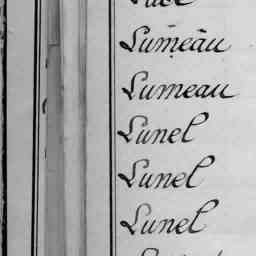 Lumeau
Lumeau
Lunel
Lunel
Lunel